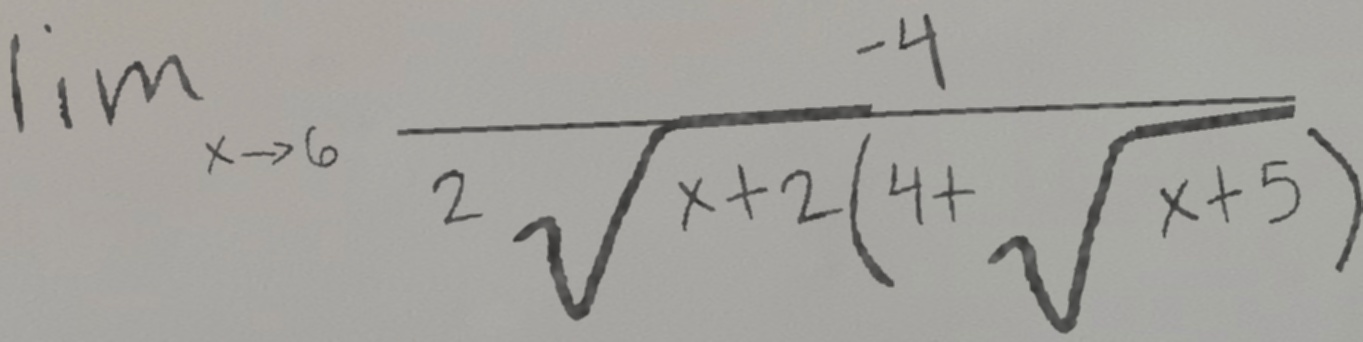 lim x→6 -4 / 2√x+2(4+√x+5)